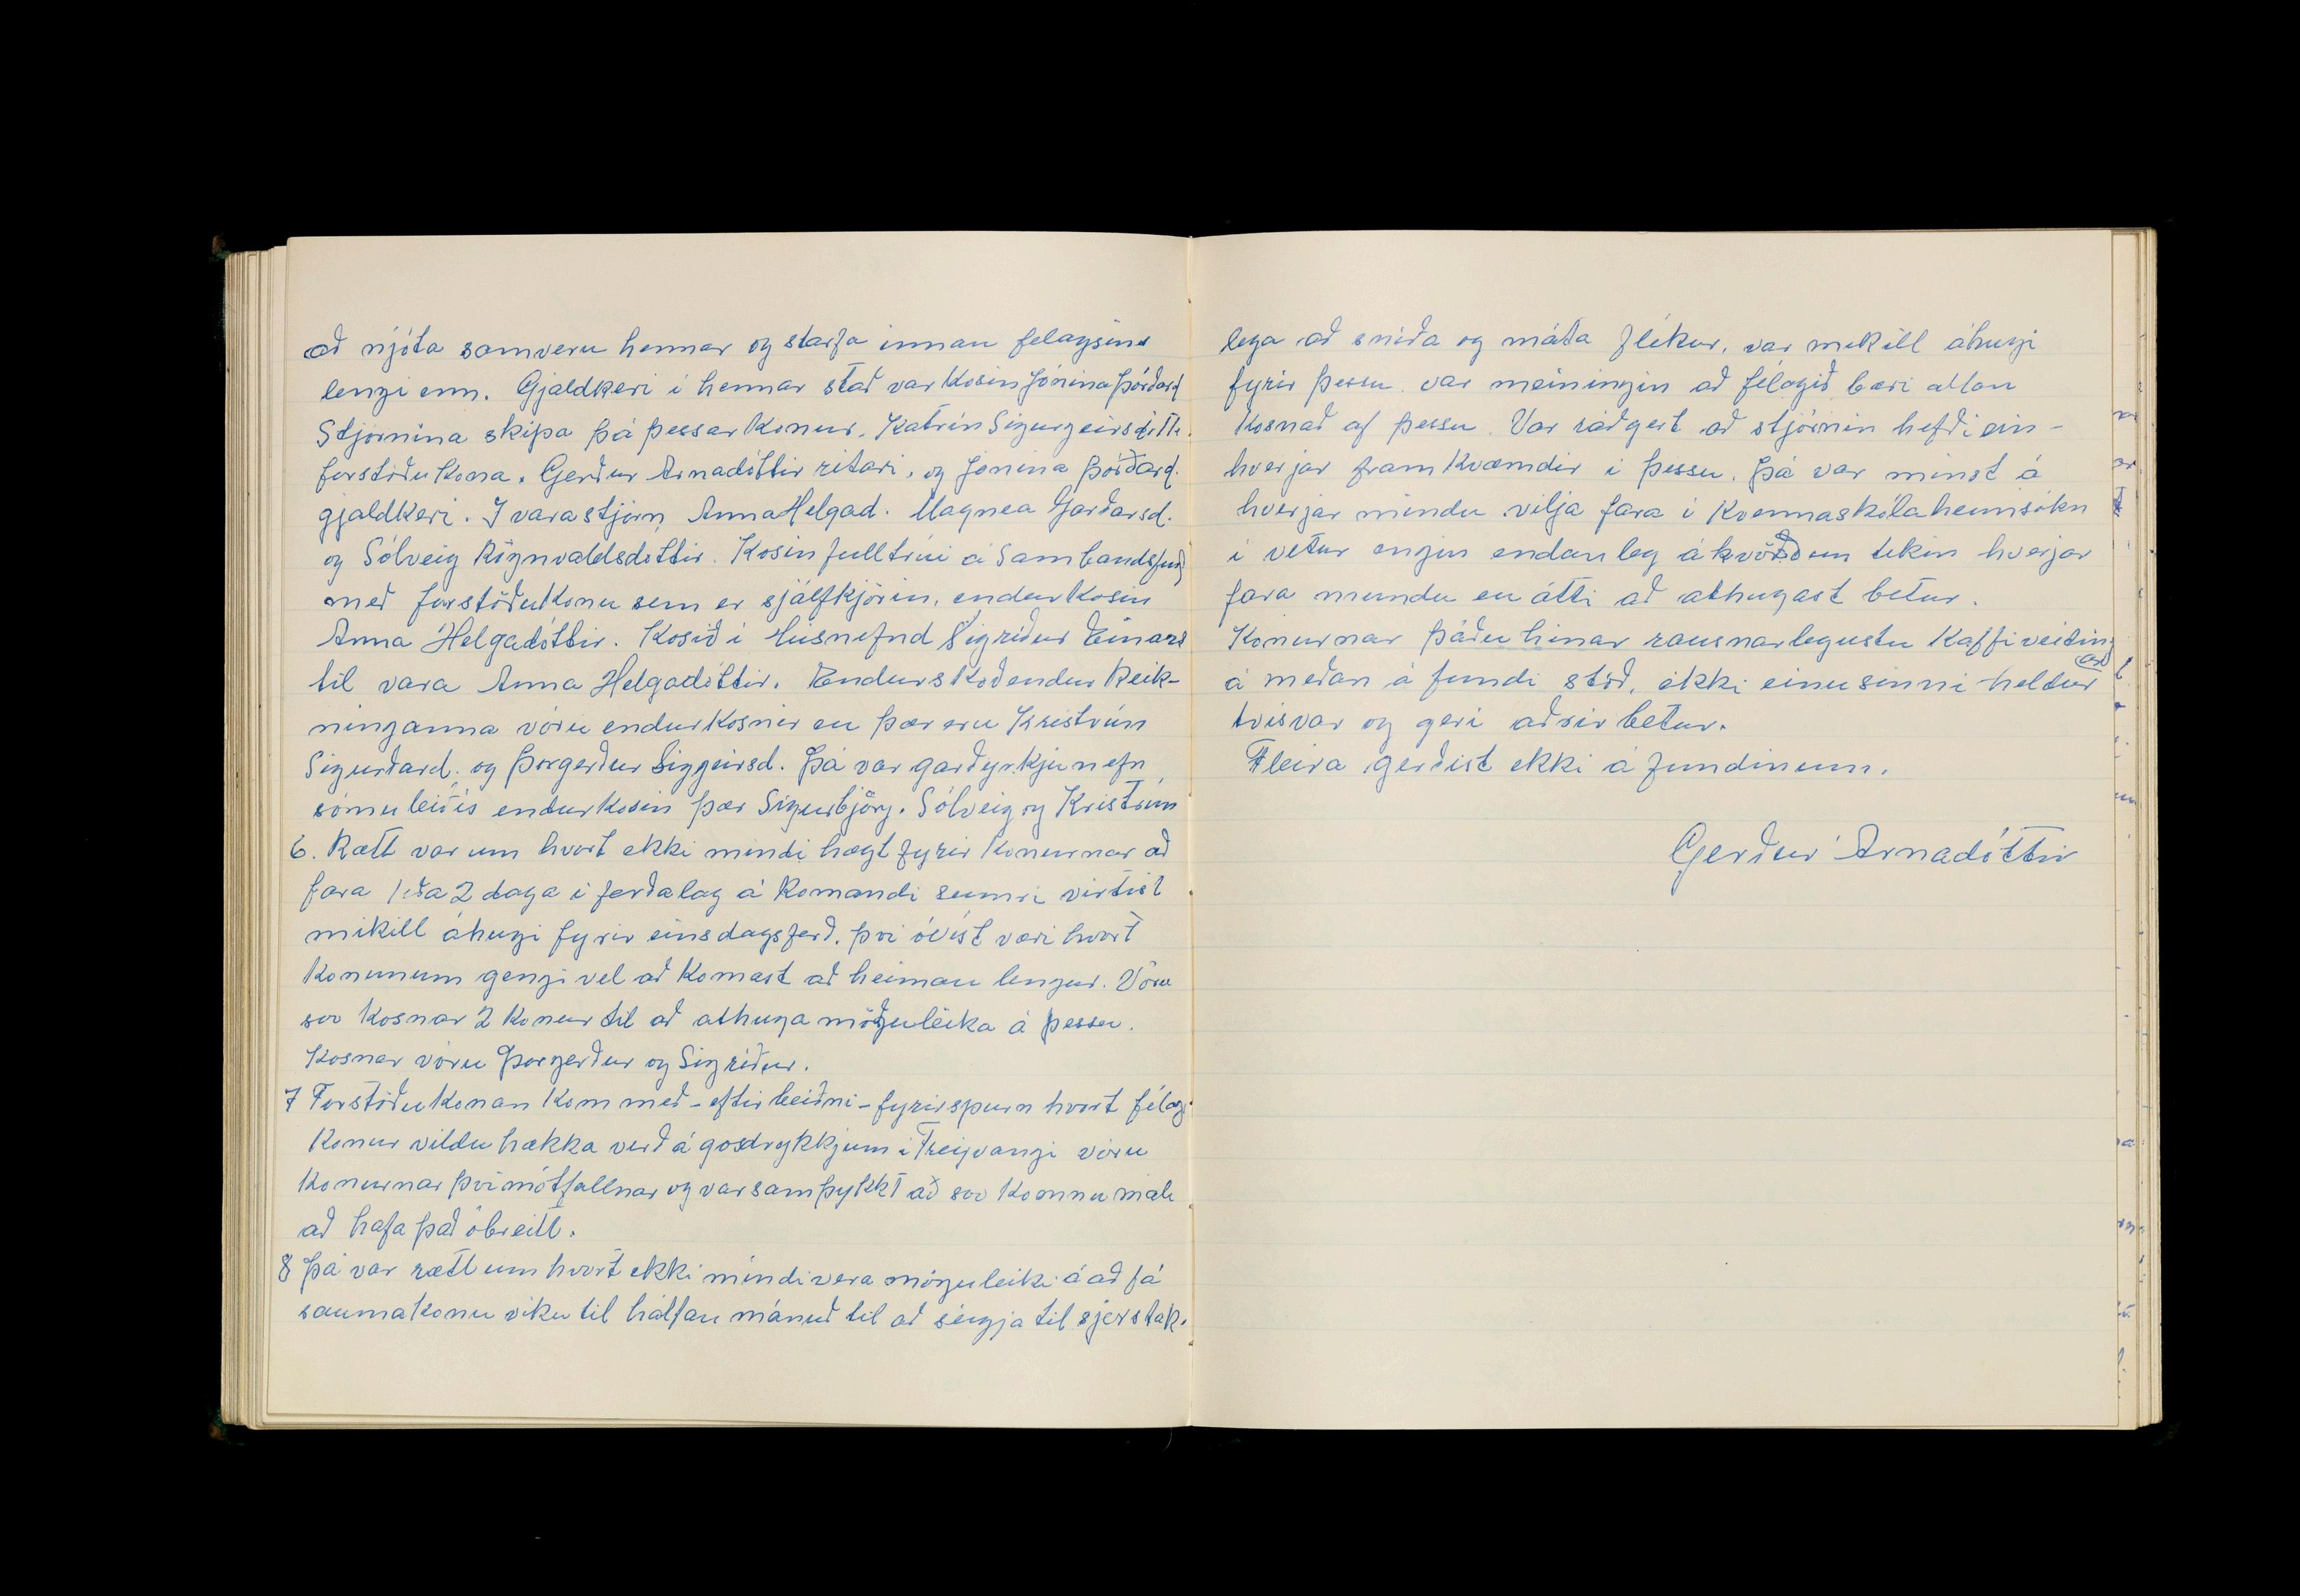 að njóta samveru hennar og starfa innan felagsins
lengi enn. Gjaldkeri i hennar stað var Kosin Jónina Þórðard
Stjornina skipa þá þessar Konur. Katrín Sigurgeirsdóttir.
forstöðuKona. Gerður Arnadóttir ritari, og Jonina Þórðard.
gjaldkeri. I varastjórn Anna Helgad. Magnea Garðarsd.
og Sólveig Rögnvaldsdóttir. Kosin fulltrúi á Sambandsfund
með forstöðuKonu sem er sjálfkjörin. endurkosin
Anna Helgadóttir. Kosið i húsnefnd Sigriður Einars
til vara Anna Helgadóttir. Endurskoðendur Reik-
ninganna vóru endurKosnir en þær eru Kristrún
Sigurðard. og Þorgerður Siggeirsd. Þá var garðyrkjunefn
sömuleiðis endurkosin þær Sigurbjörg. Sólveig og Kristrún
6. Rætt var um hvort ekki mindi hægt fyrir Konurnar að
fara 1 eða 2 daga i ferðalag á Komandi sumri virtist
mikill áhugi fyrir eins dags ferð. þvi óvíst væri hvort
Konunum gengi vel að Komast að heiman lengur. Vóru
svo Kosnar 2 Konur til að athuga möguleika á þessu.
Kosnar vóru Þorgerður og Sigríður.
7 Forstöðukonan Kom með - eftir beiðni - fyrirspurn hvort félags
Konur vildu hækka verð á gosdrykkjum i Freyvangi vóru
Konurnar þvi mótfallnar og var samþykkt að svo Komnu mále
að hafa það óbreitt.
8 Þá var rætt um hvort ekki mindi vera möguleiki á að fá
saumakonu viku til hálfan mánuð til að seigja til sjerstak-
lega að sniða og máta flíkur. var mikill áhugi
fyrir þessu. var meiningin að félagið bæri allan
Kosnað af þessu. Var ráðgert að stjórnin hefði ein-
hverjar framkvæmdir i þessu. Þá var minst á
hverjar mindu vilja fara i Kvennaskólaheimsókn
i vetur engin endanleg ákvörðun tekin hverjar
fara mundu en átti að athugast betur.
Konurnar þáðu hinar rausnarlegustu Kaffiveiting
ar
á meðan á fundi stóð, ekki einusinni heldur
tvisvar og geri aðrir betur.
Fleira gerðist ekki á fundinum.
Gerður Arnadóttir